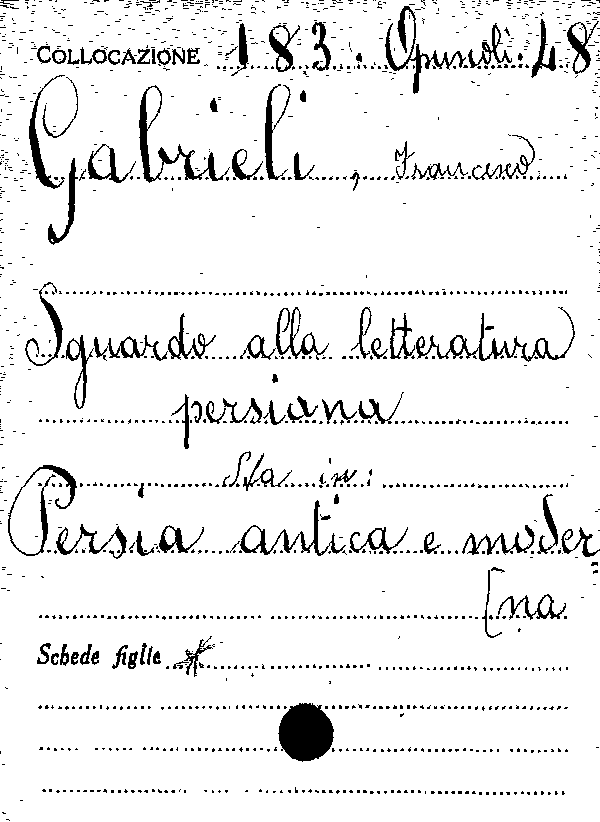 COLLOCAZIONE 183. Opuscoli. 48
Gabrieli, Francesco
Sguardo alla letteratura
persiana
Sta in:
Persia antica e moder=
[na
Schede figlie